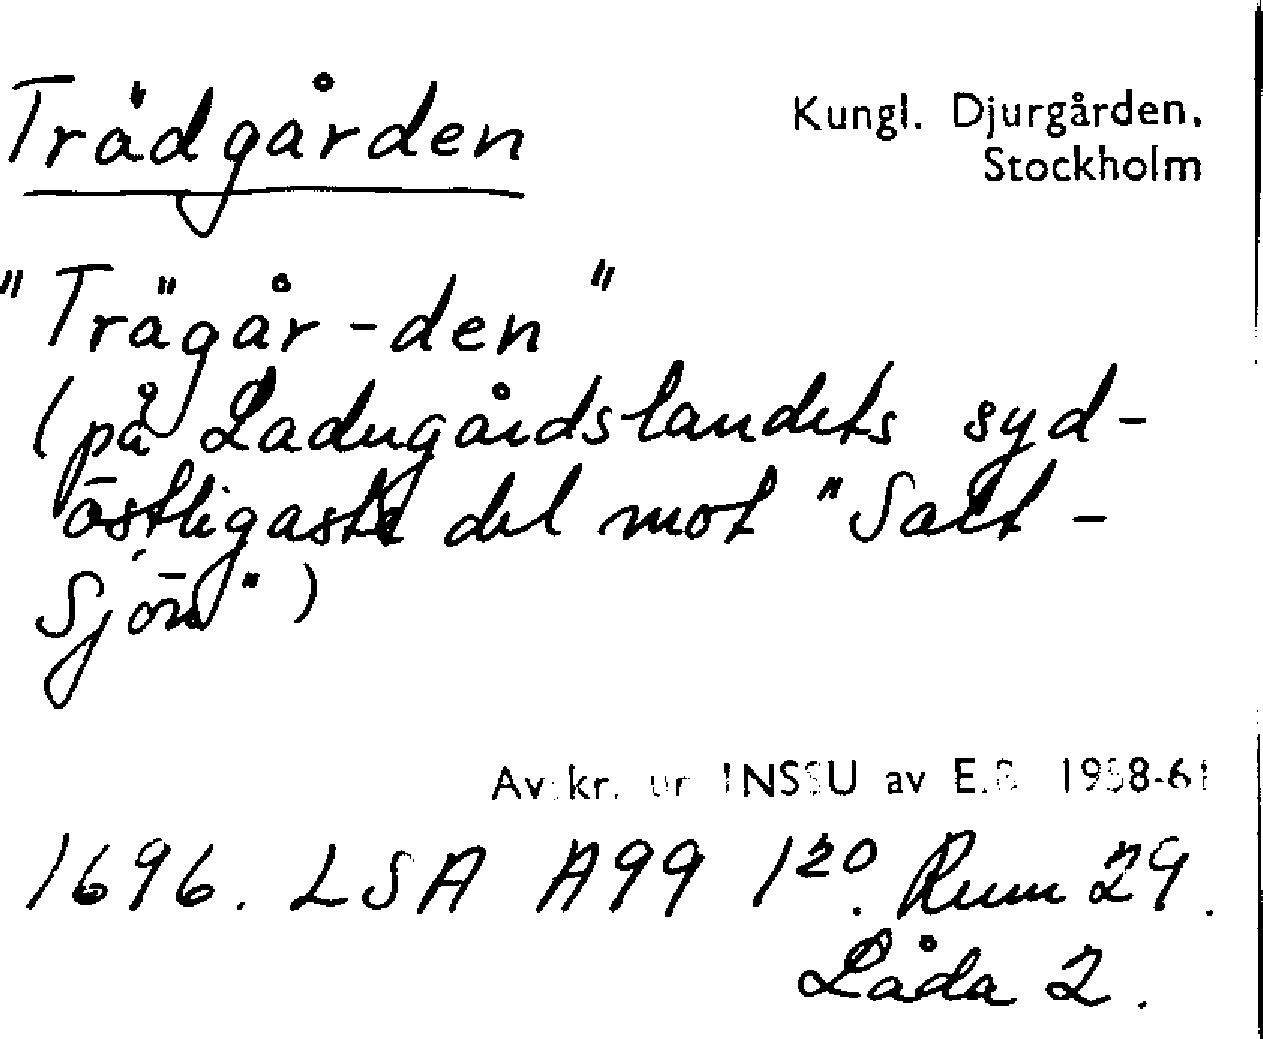 Trädgården
Kungl. Djurgården,
Stockholm
"Trägår-den"
(på Ladugårdslandets syd-
östligaste del mot "Salt-
Sjön")
Avskr. ur INSSU av E.B. 1958-61
1696. LSA A99 1²⁰. Rum 29.
Låda 2.